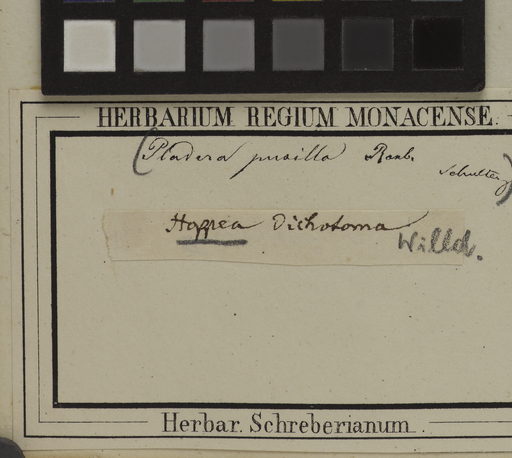 HERBARIUM REGIUM MONACENSE.
(Pladera pusilla Roxb.
Schultes)
Hoppea Dichotoma Willd.
Herbar. Schreberianum.